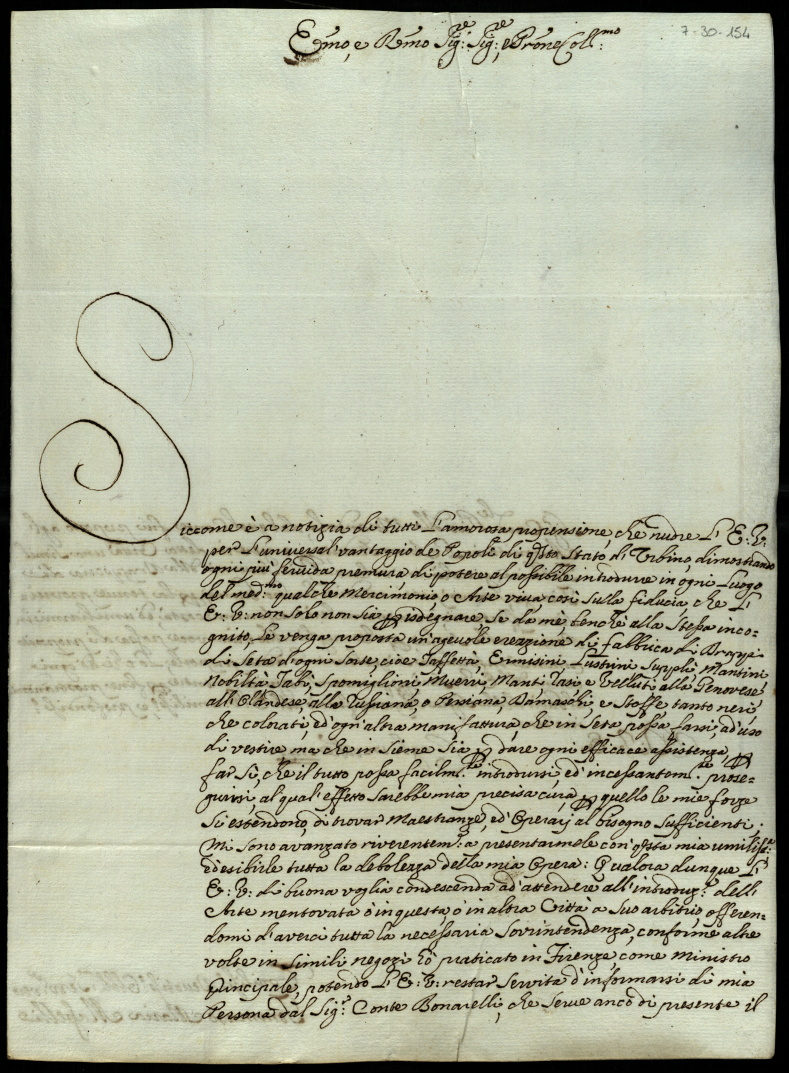 7-30-154
Em̃o, e Rm̃o Sig:re Sig:re, e Prõne Coll:mo
Siccome è a notizia di tutti l'amorosa propensione, che nudre l'E: V:
per l'universal vantaggio de Popoli di q̃sto Stato d'Urbino, dimostrando
ogni più fervida premura di potere al possibile introdurre in ogni Luogo
del med:mo qualche Mercimonio o Arte viva così sulla fiducia che l'
E: V: non solo non sia ꝑ isdegnare, se da me, benche alla Stessa inco-
gnito, Le venga proposta un'agevole erezzione di fabbrica di Drappi
di Seta d'ogni Sorte, cioe Taffettà, Ermisini Lustrini Suppli Mantini
Nobiltà Tabi, Spomiglioni Muerri, Manti Rasi e Velluti alla Genovese
all'Olandese, alla Russiana, o Persiana, Damaschi, e Stoffe tanto neri
che colorati, ed'ogn'altra manifattura che in Seta possa farsi ad'uso
di vestire ma che in Sieme Sia ꝑ dare ogni efficace assistenza, ꝑ
far Sì, che il tutto possa facilm:te introdursi ed'incessantem:te prose-
guirsi al qual'effetto sarebbe mia precisa cura, ꝑ quello le mie forze
Si estendono, di trovar Maestranze, ed'Operaij al bisogno Sufficienti.
Mi Sono avanzato riverentem:te a presentarmele con q̃sta mia umiliss:a
ed'esibirle tutta la debolezza della mia Opera: Qualora dunque l'
E: V: di buona voglia condescenda ad'attendere all'introduz:e dell'
Arte mentovata ò in questa, ò in altra Città a Suo arbitrio, offeren-
domi d'averci tutta la necessaria Sovrintendenza, conforme altre
volte in Simili negozi hò praticato in Firenze, come Ministro
Principale, potendo l'E: V: restar Servita d'informarsi di mia
Persona dal Sig:r Conte Bonarelli, che Serve anco di presente il